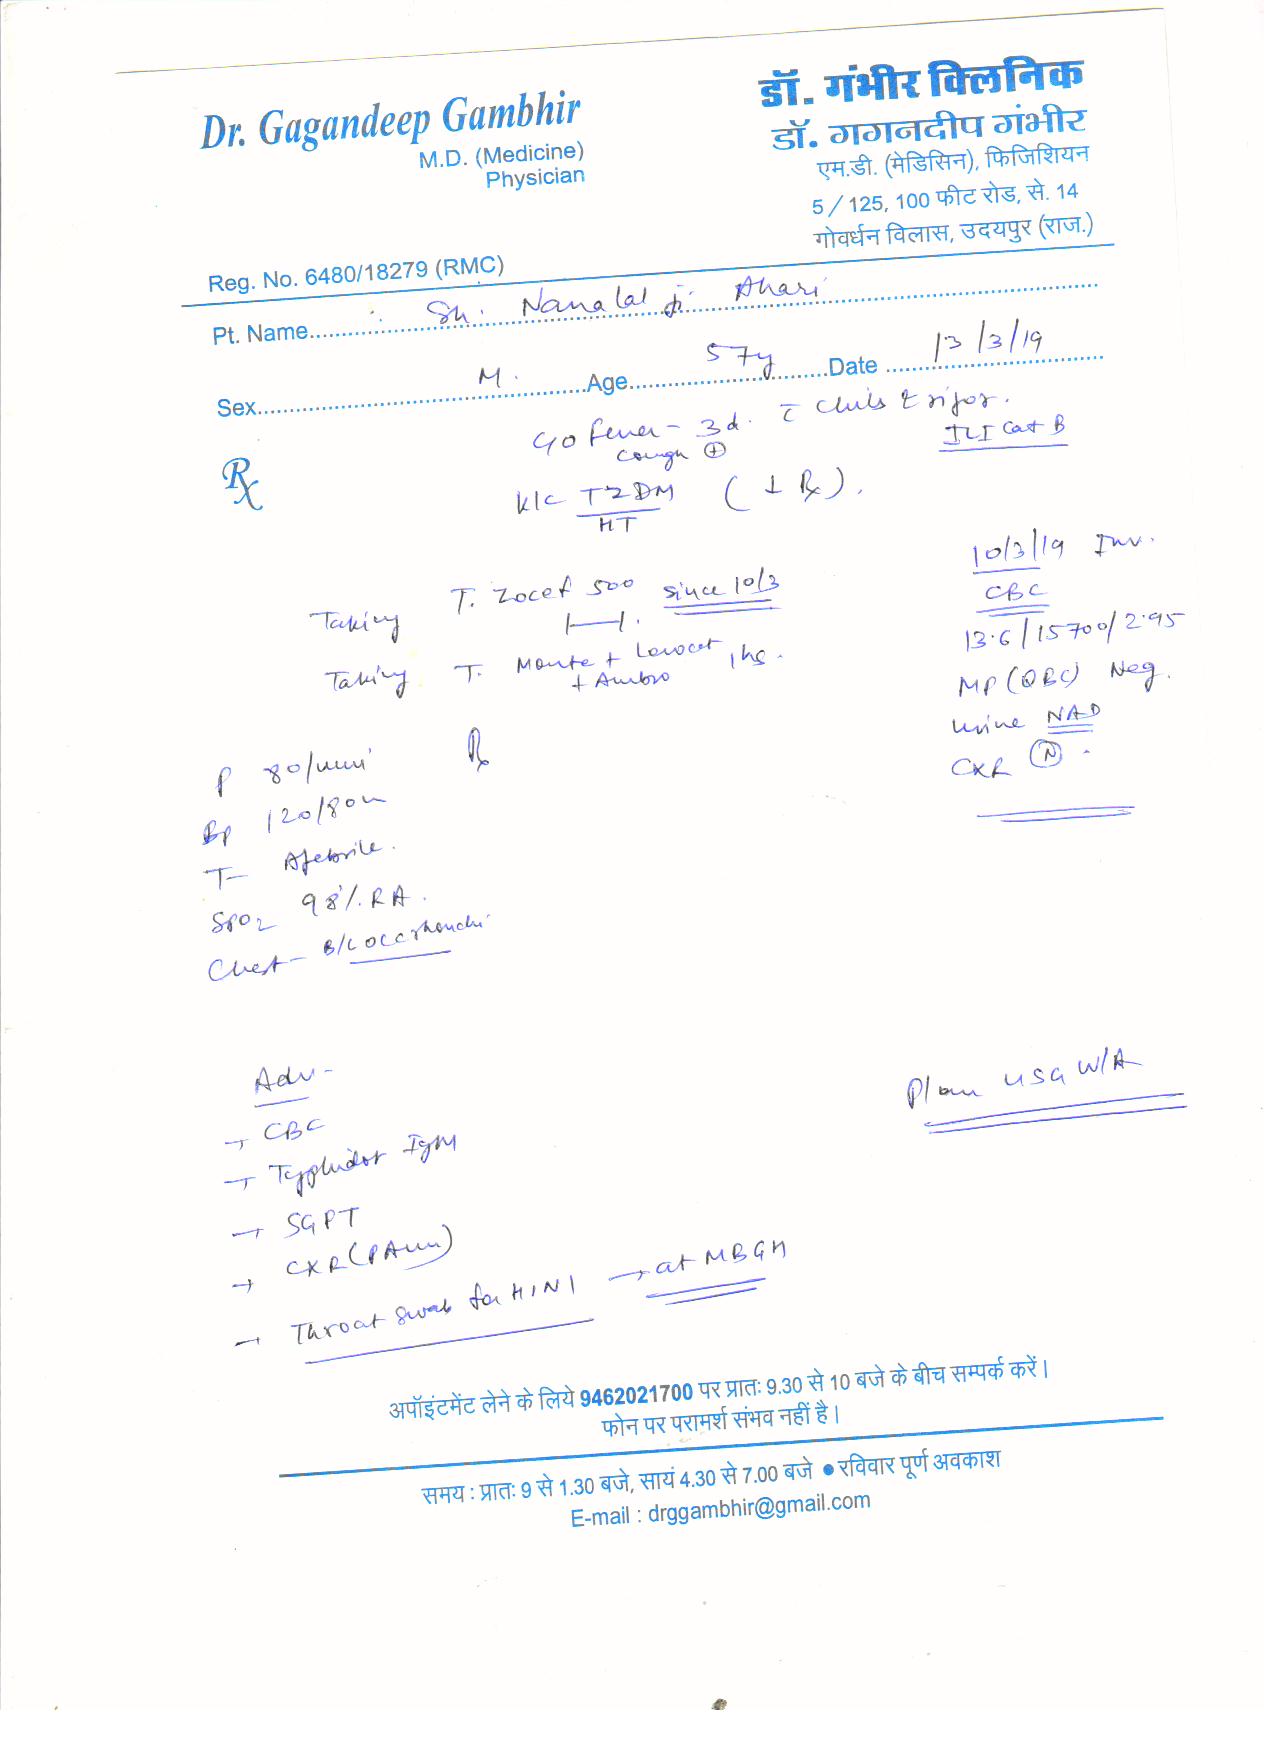 Dr. Gagandeep Gambhir
M.D. (Medicine)
Physician
Reg. No. 6480/18279 (RMC)
डॉ. गंभीर क्लिनिक
डॉ. गगनदीप गंभीर
एम.डी. (मेडिसिन), फिजिशियन
5 / 125, 100 फीट रोड, से. 14
गोवर्धन विलास, उदयपुर (राज.)
Pt. Name Sh. Nanalal ji Ahari
Sex M. Age 57y Date 13/3/19
Rx
C/o Fever - 3d. c̄ chills & rigor.
Cough ⊕
ILI Cat B
K/C T2DM (↓ Rx).
HT
Taking T. Zocef 500 since 10/3
Taking T. Monte + Levocet 1hs.
+ Ambro
10/3/19 Inv.
CBC
13.6/15700/2.95
MP (QBC) Neg.
Urine NAD
CXR (N)
Rx
P 80/min
Bp 120/80
T- Afebrile.
SpO2 98% RA.
Chest- B/L occ rhonchi
Adv-
→ CBC
→ Typhidot IgM
→ SGPT
→ CXR (PA view)
→ Throat swab for H1N1 → at MBGH
Plan USG W/A
अपॉइंटमेंट लेने के लिये 9462021700 पर प्रातः 9.30 से 10 बजे के बीच सम्पर्क करें।
फोन पर परामर्श संभव नहीं है।
समय : प्रातः 9 से 1.30 बजे, सायं 4.30 से 7.00 बजे ● रविवार पूर्ण अवकाश
E-mail : drggambhir@gmail.com